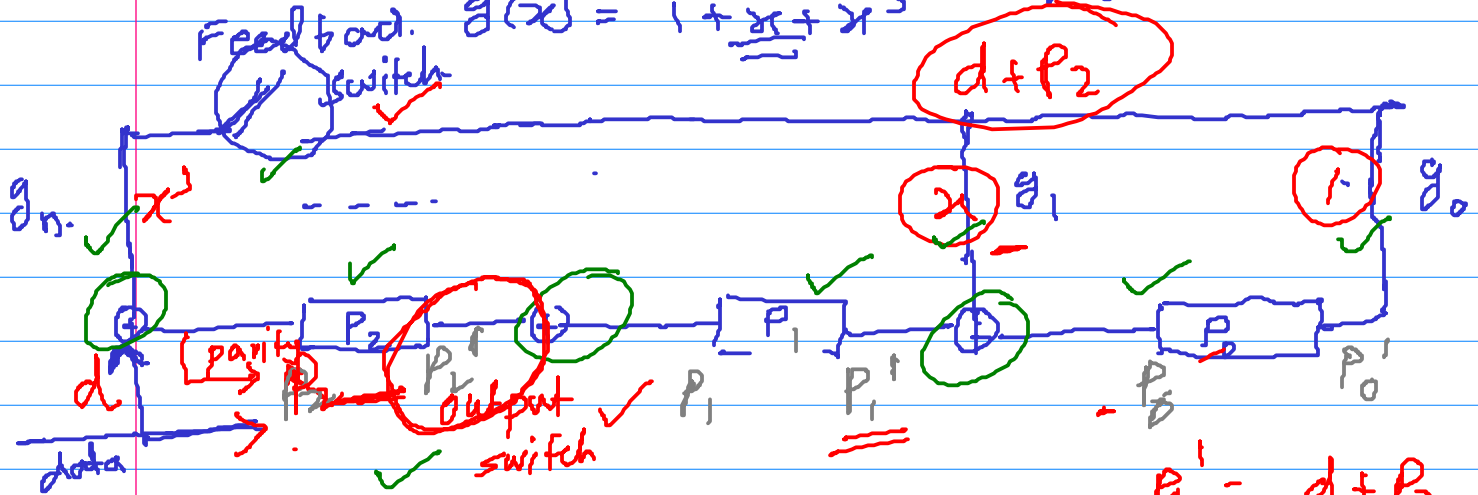 g(x) = 1 + x + x³
Feedbac.
switch
d + P₂
gₙ.
x³
- - - -
x
g₁
1.
g₀
+
P₂
+
P₁
P₀
d
parity
P₂
P₂'
P₁
P₁'
P₀
P₀'
output
switch
data
P₀' = d + P₂